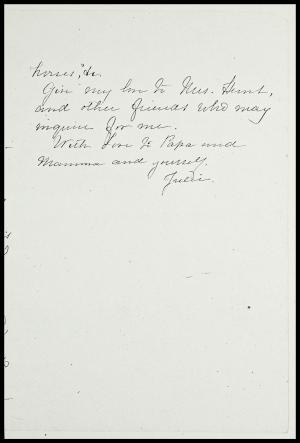 horses, &c.
Give my love to Mrs. Hunt,
and other friends who may
inquire for me.
With Love to Papa and
Mamma and yourself.
Julie.